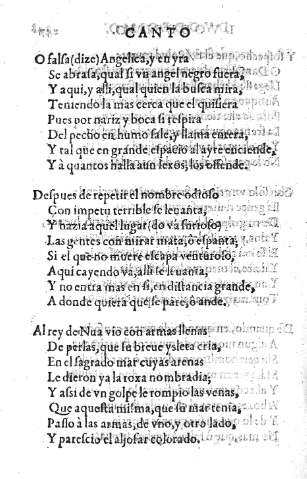 CANTO
O falsa (dize) Angelica, y en yra
Se abrasa, qual si vn angel negro fuera,
Y aqui, y alli, qual quien la busca mira,
Teniendo la mas cerca que el quisiera
Pues por nariz y boca si respira
Del pecho en humo sale, y llama entera,
Y tal que en grande espacio al ayre enciende,
Y à quantos halla aun lexos, los ofende.
Despues de repetir el nombre odioso
Con impetu terrible se leuanta,
Y hazia aquel lugar (do va furioso)
Las gentes con mirar mata, ò espanta,
Si el que no muere escapa venturoso,
Aqui cayendo va, alli se leuanta,
Y no entra mas en si, en distancia grande,
A donde quiera que se pare, ò ande.
Al rey de Nua vio con armas llenas
De perlas, que su breue ysleta cria,
En el sagrado mar cuyas arenas
Le dieron ya la roxa nombradia;
Y assi de vn golpe le rompio las venas,
Que aquesta misma, que su mar tenia,
Passo à las armas, de vno, y otro lado,
Y parescio el aljofar colorado.